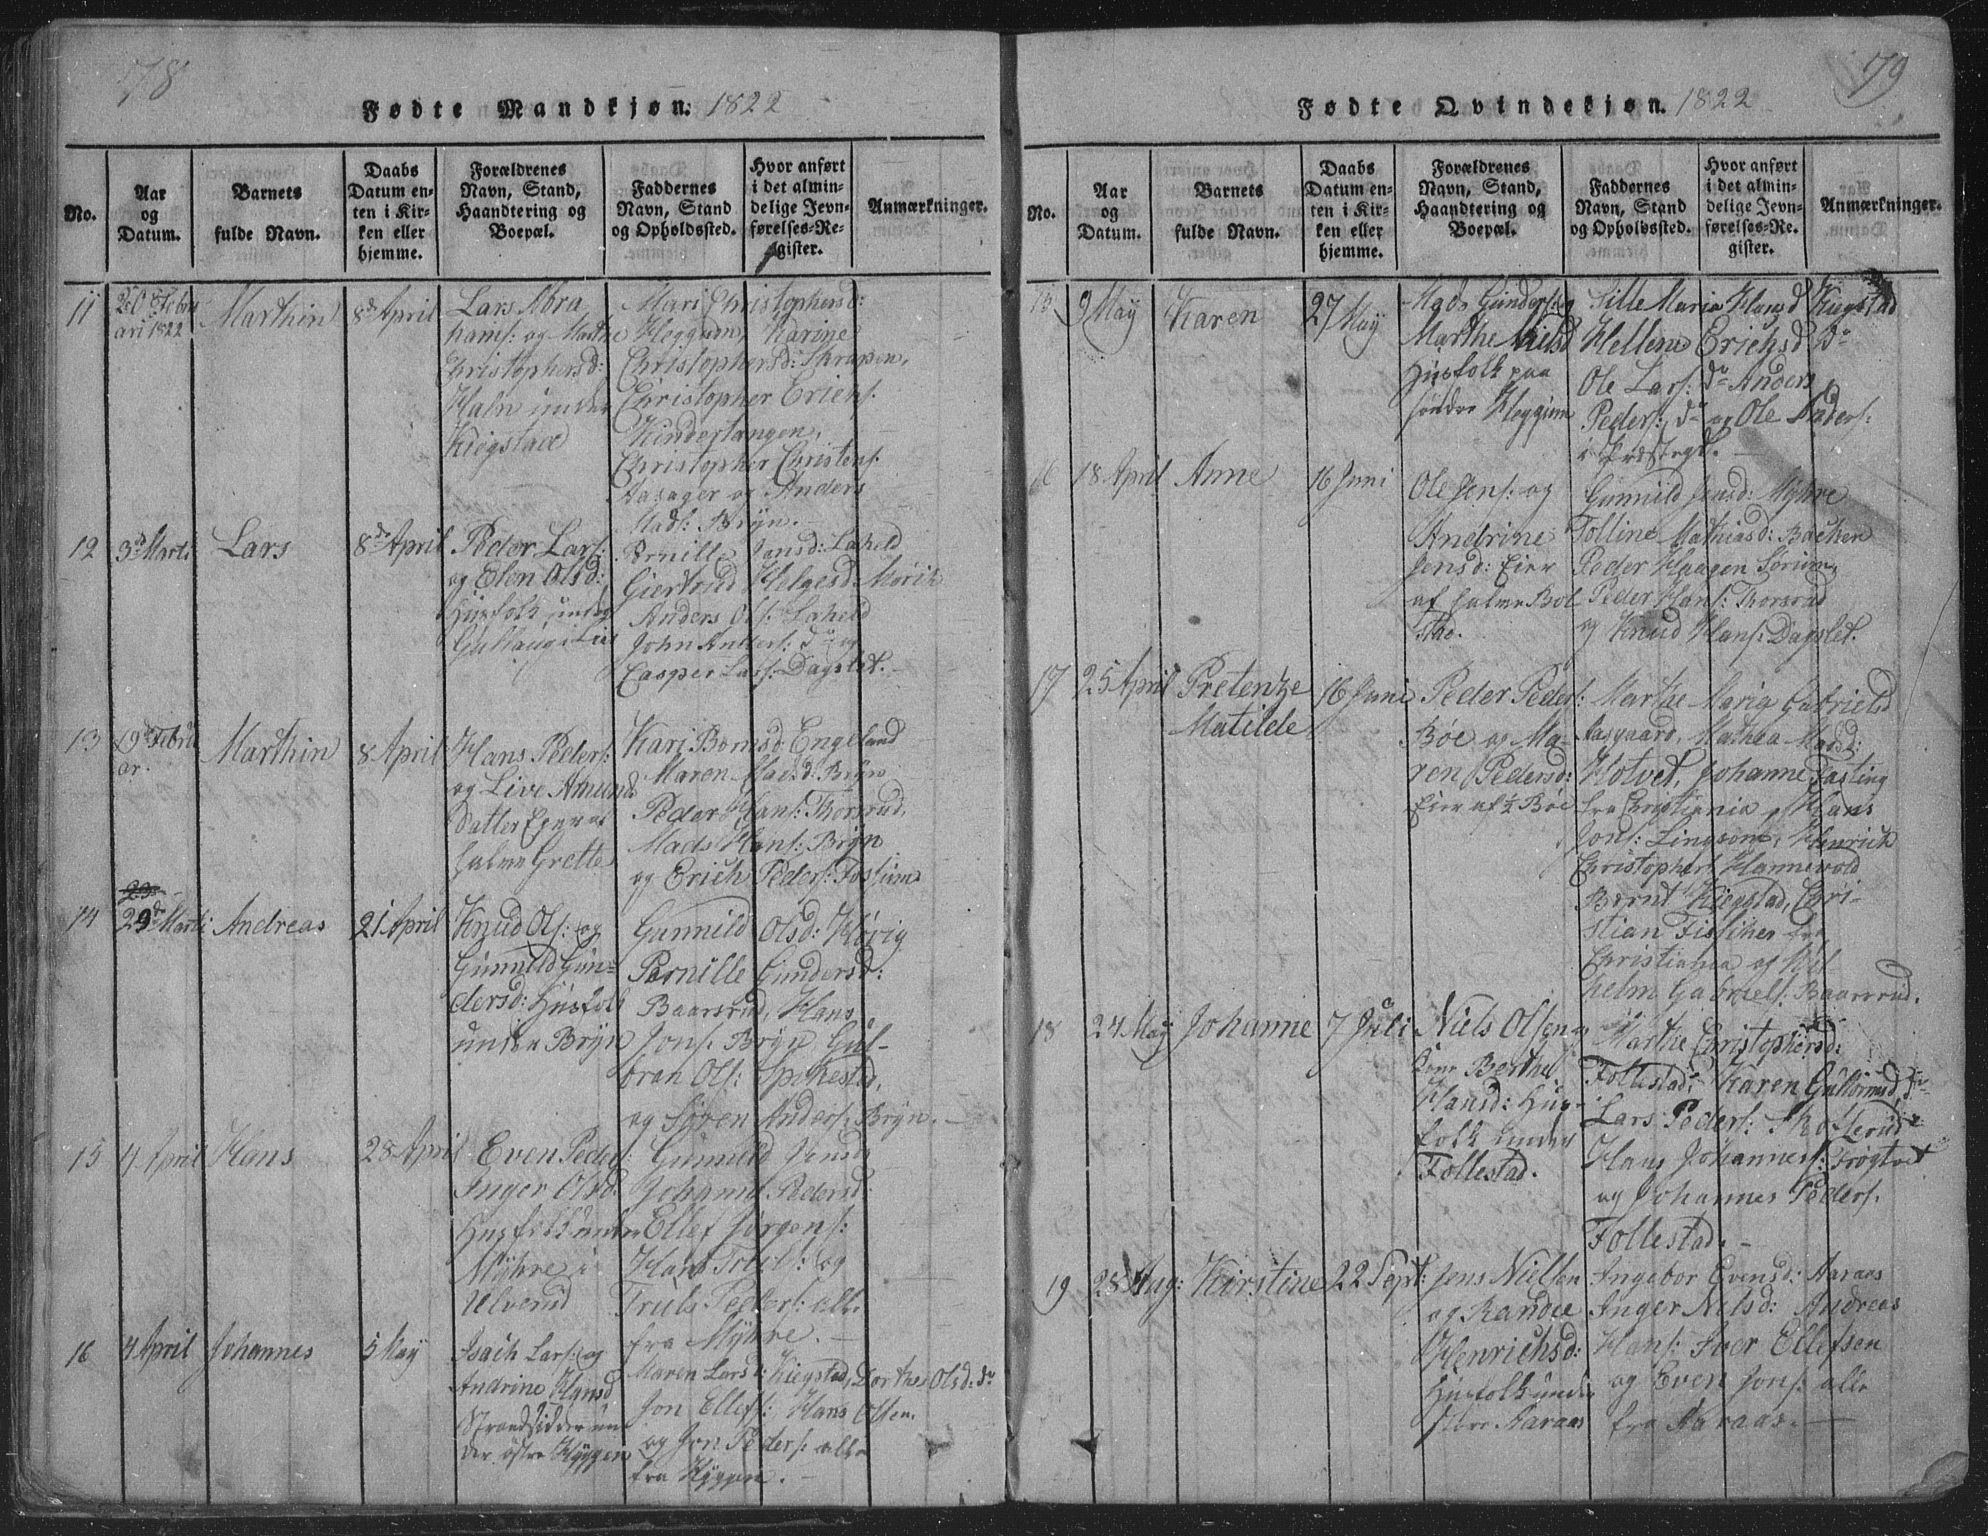 78
Fødte Mandkjøn. 1822
No.
Aar
og
Datum.
Barnets
fulde Navn.
Daabs
Datum en-
ten i Kir-
ken eller
hjemme.
Forældrenes
Navn, Stand,
Haandtering og
Boepæl.
Faddernes
Navn, Stand
og Opholdssted.
Hvor anført
i det almin-
delige Jevn-
førelses-Re-
gister.
Anmærkninger.
11
20 Febru
ari 1822
Marthin
8de April
Lars Abra
hams: og Marthe
Christophersd:
Haln under
Kiegstad
Mari Christophersd:
Heggum, Karine
Christophersd: Skrapen,
Christopher Erichs.
Kinderlangen,
Christopher Christens.
Aasager og Anders
Mads: Bryn.
12
3d Marti
Lars
8de April
Peder Lars:
og Elen Olsd:
Husfolk under
Gullaug i Lier
Pernille Jonsd: Laheld
Giertrud Helgesd Mörik
Anders Ols: Laheld
John Anders: do og
Casper Lars: Dagslet.
13
19de Febru
ar.
Marthin
8 April
Hans Peders:
og Live Amund
Datter Eier af
halve Grette
Kari Bomsd Engeland
Maren Madsd: Bryn
Peder Hans: Thorsrud,
Mads Hans: Bryn
og Erich Peders: Fossum
14
29de Marti
Andreas
21 April
Knud Ols: og
Gunnild Gun-
dersd: Husfolk
under Bryn
Gunnild Olsd: Høvig
Pernille Gundersd:
Baarsrud, Hans
Jons. Bryn Gul-
bran Ols: Spikestad,
og Søren Anders: Bryn.
15
4 April
Hans
28 April
Even Peders:
Inger Olsd
Husfolk under
Myhre i
Ulverud
Gunnild Jensd
Johanne Pedersd:
Ellef Jørgens:
Hans Trels: og
Truls Peders: alle
fra Myhre.
16
4 April
Johannes
5 May
Isach Lars: og
Andrine Hansd
Strandsidder un
der østre Hyggen
Maren Larsd: Kiegstad, Dorthe Olsd: do
Jon Ellefs: Hans Olsen
og Jon Peders: alle
fra Hyggen.
79
Fødte Qvindekjøn. 1822
No.
Aar
og
Datum.
Barnets
fulde Navn.
Daabs
Datum en-
ten i Kir-
ken eller
hjemme.
Forældrenes
Navn, Stand,
Haandtering og
Boepæl.
Faddernes
Navn, Stand
og Opholdssted.
Hvor anført
i det almin-
delige Jevn-
førelses-Re-
gister.
Anmærkninger.
15
9 May
Karen
27 May
Gunders: og
Marthe Nielsd
Husfolk paa
søndre Heggum
Sille Maria Hansd Kiegstad
Hellene Erichsd Do
Ole Lars: do Anders
Peders: do og Ole Anders:
16
18 April
Anne
16 Juni
Ole Jens: og
Andrine
Jensd: Eier
af halve Bøl
stad.
Gunnild Jensd: Myhre
Tolline Mathiasd: Backen
Peder Haagen Sørum,
Peder Hans: Thorsrud
og Knud Hans: Dagslet.
17
25 April
Pretenze
Matilde
16 Juni
Peder Peders:
Bøe og Ma-
ren Pedersd:
Eier af 1/2 Bøe
Marthe Maria Gabrielsd
Aasgaard, Mathea Madsd:
Hotvet, Johanne Fasting
fra Christiania, Hans
Jons: Lingsom, Henrich
Christophers: Hannevold
Bernt Kiegstad, Chri-
stian Fischer fra
Christiania og Vil
helm Gabriels: Baarsrud.
18
24 May
Johanne
7 Juli
Niels Olsen og
Berthe
Hansd: Hus-
folk under
Follestad.
Marthe Christophersd:
Follestad, Karen Guttormsd
Lars Peders: Skotterud
Hans Johannes: Frøgtvet
og Johannes Peders.
Follestad.
19
28 Aug:
Kirstine
22 Sept:
Jens Nielsen
og Randee
Henrichsd:
Husfolk under
Karaas
Ingebor Evensd: Aaraas
Anger Nilsd: Andreas
Hans: Iver Ellefsen
og Even Jons: alle
fra Aaraas.